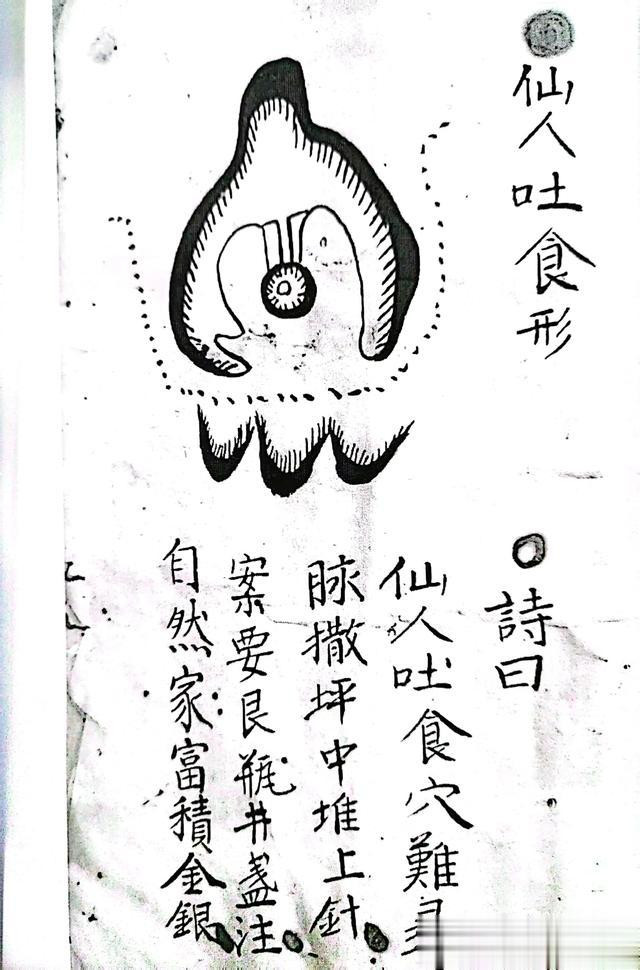 仙人吐食形
詩曰
仙人吐食穴難
脉撒坪中堆上針
案要艮瓶井盞注
自然家富積金銀